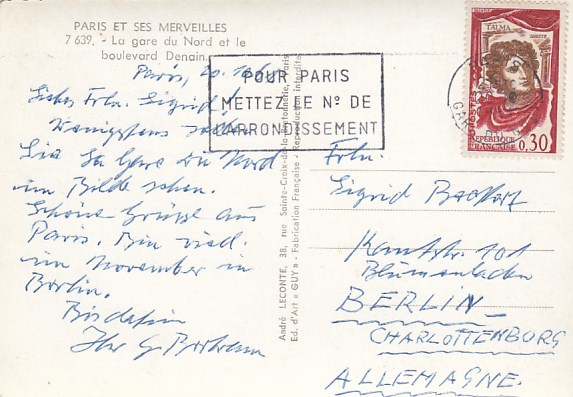 PARIS ET SES MERVEILLES
7 639. - La gare du Nord et le
boulevard Denain.
Paris, 20.10.6
Liebes Frln. Sigrid!
Wenigstens sollen
Sie La Gare du Nord
im Bilde sehen.
Schöne Grüsse aus
Paris. Bin viell.
im November in
Berlin.
Bis dahin
Ihr G.
POUR PARIS
METTEZ LE Nº DE
L'ARRONDISSEMENT
André LECONTE, 38, rue Sainte-Croix-de-la-Bretonnerie, Paris
Ed. d'Art « GUY » - Fabrication Française - Reproduction interdite
TALMA
REPUBLIQUE
FRANÇAISE
0,30
Frln.
Sigrid
Kantstr. 101
Blumenladen
BERLIN-
CHARLOTTENBURG
ALLEMAGNE.